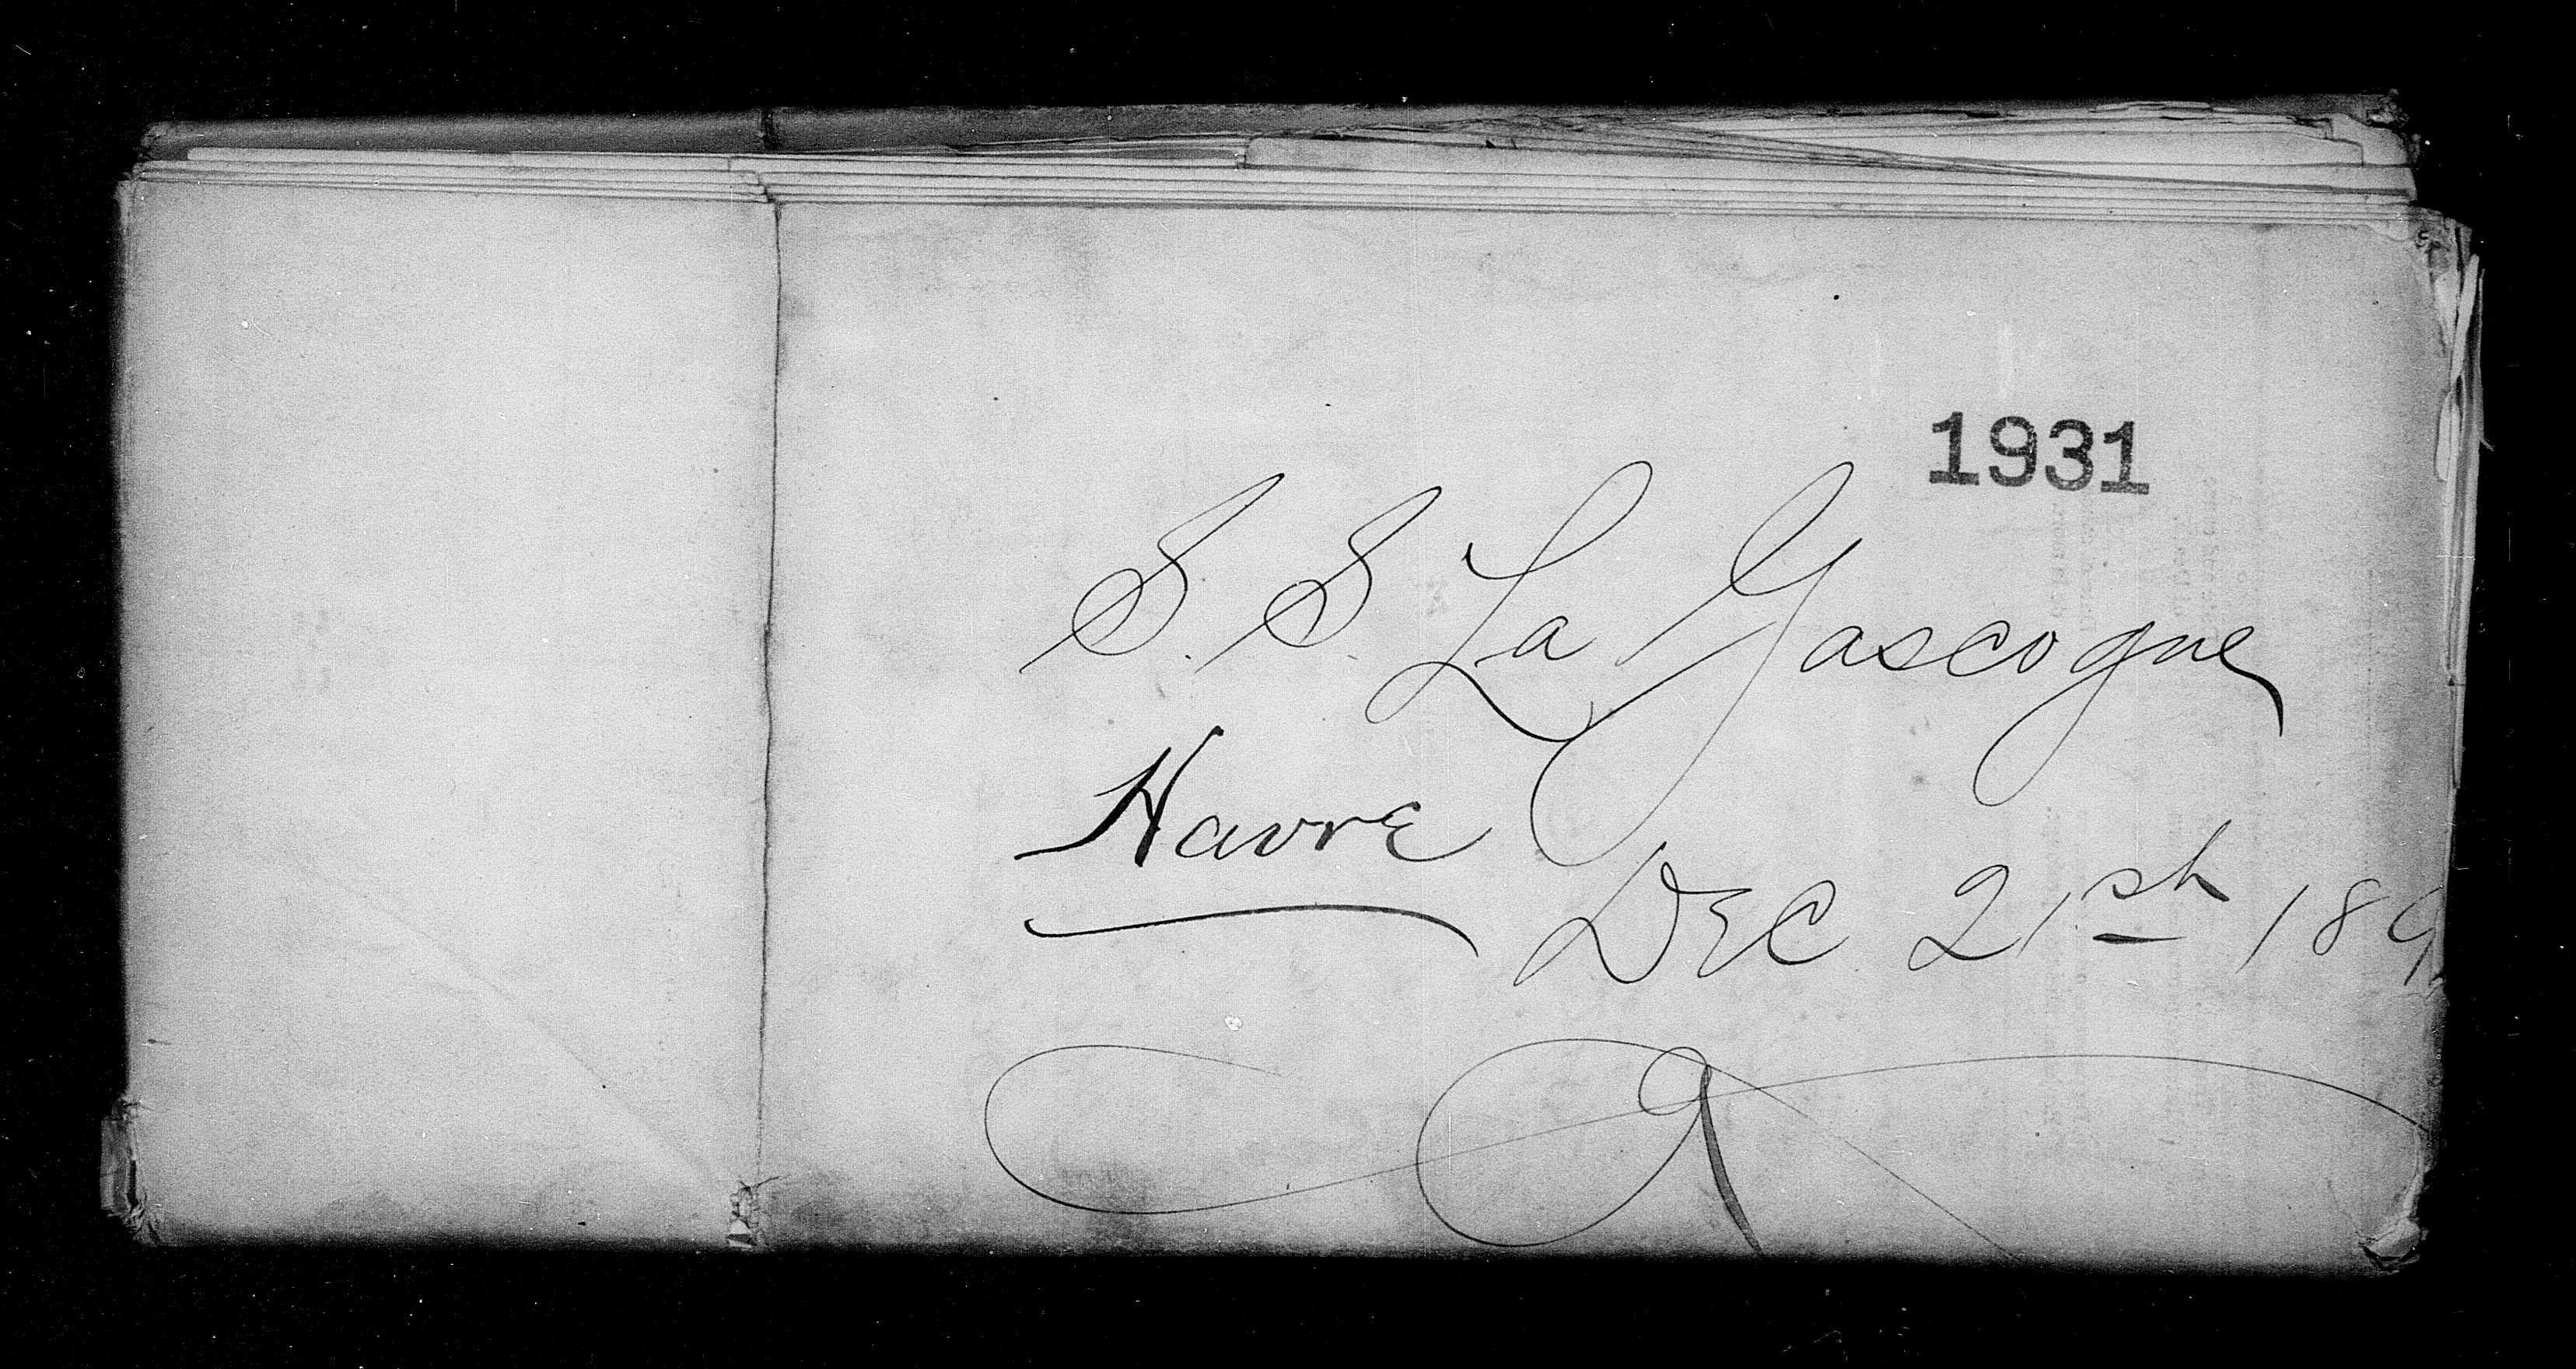 1931
S. S. La Gascogne
Havre
Dec 21st 189